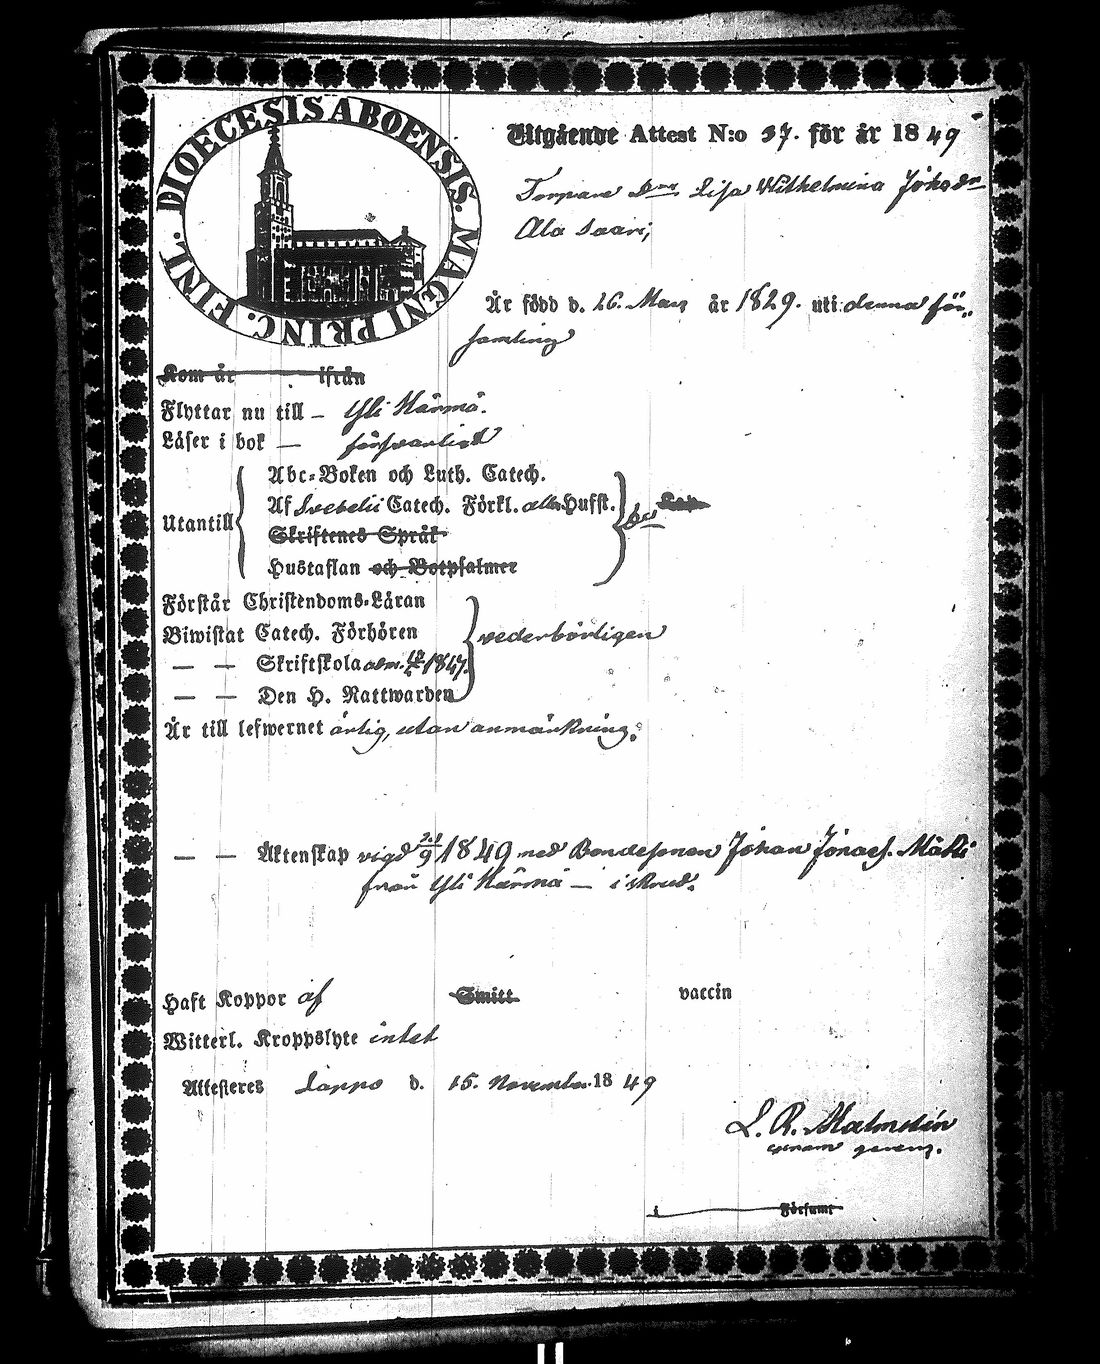 DIOECESIS ABOENSIS. MAGNI PRINC. FINL.
Utgående Attest N:o 37. för år 1849
Torpare Dna Lisa Wilhelmina Johsdr
Ala Saari,
Är född d. 26. Mars år 1829. uti denna för-
samling
Kom år ifrån
Flyttar nu till – Yli Härmä.
Läser i bok — försvarligt
Utantill
Abc-Boken och Luth. Catech.
Af Svebelii Catech. Förkl. alla Hufst.
Skriftenes Språk
Hustaflan och Botpsalmer
Förstår Christendoms-Läran
Biwistat Catech. Förhören vederbörligen
— — Skriftskola 1847.
— — Den H. Nattwarden
Är till lefwernet ärlig, utan anmärkning.
— — Äktenskap vigd 23/9 1849 med Bondesonen Johan Jonass. Mäki
från Yli Härmä — i skrud.
Haft Koppor af Smitt vaccin
Witterl. Kroppslyte intet
Attesteres Lappo d. 15. November 1849
L. R. Malmstén
i Församl